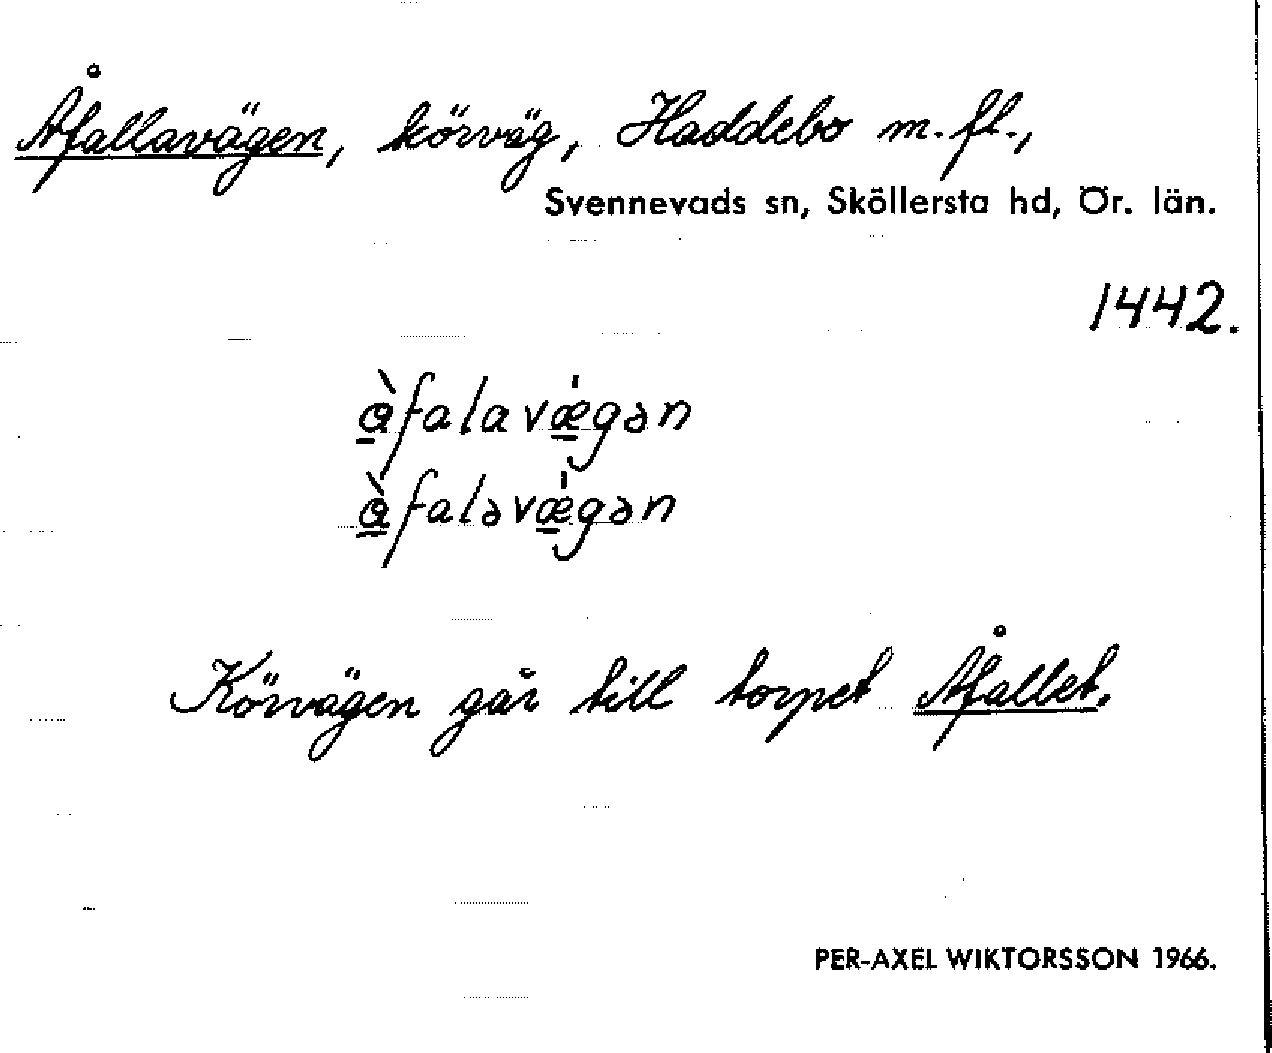 Åfallavägen, körväg, Haddebo m.fl.,
Svennevads sn, Sköllersta hd, Ör. län.
1442.
à̲falavǽ̲gən
à̲faləvǽ̲gən
Körvägen går till torpet Åfallet.
PER-AXEL WIKTORSSON 1966.